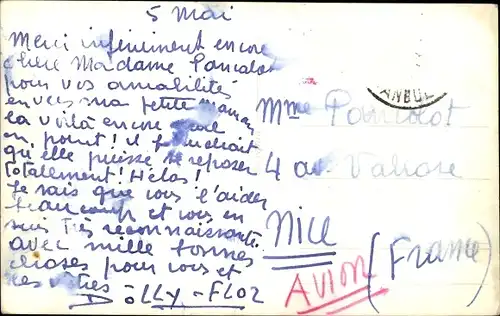 5 Mai
Merci infiniment encore
chère Madame Pancalot
pour vos amabilités
envers ma petite Maman
la voilà encore
en point! il faudrait
qu'elle puisse se reposer
totalement! Hélas!
Je sais que vous l'aidez
beaucoup et vous en
suis très reconnaissante
avec mille bonnes
choses pour vous et
les vôtres
DOLLY-FLOR
ANBUL
Mme Pancalot
4 av. Valrose
Nice
(France)
AVION